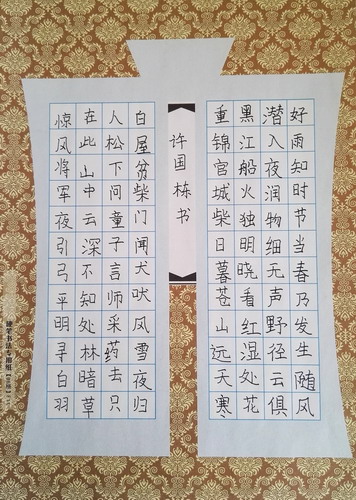 好雨知时节当春乃发生随风
潜入夜润物细无声野径云俱
黑江船火独明晓看红湿处花
重锦官城柴日暮苍山远天寒
许国栋书
白屋贫柴门闻犬吠风雪夜归
人松下问童子言师采药去只
在此山中云深不知处林暗草
惊风将军夜引弓平明寻白羽
硬笔书法专用纸